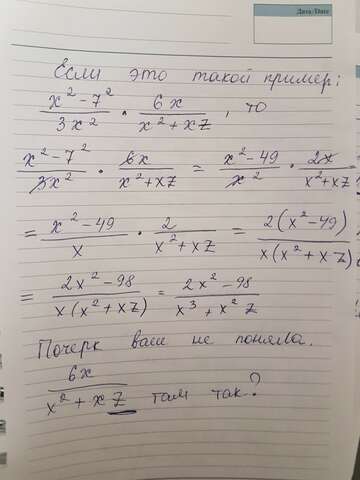 Дата/Date
Если это такой пример:
x² - 7² / 3x² · 6x / x² + xz , то
x² - 7² / 3x² · 6x / x² + xz = x² - 49 / x² · 2x / x² + xz
= x² - 49 / x · 2 / x² + xz = 2(x² - 49) / x(x² + xz)
= 2x² - 98 / x(x² + xz) = 2x² - 98 / x³ + x² z
Почерк ваш не поняла.
6x / x² + xz там так?